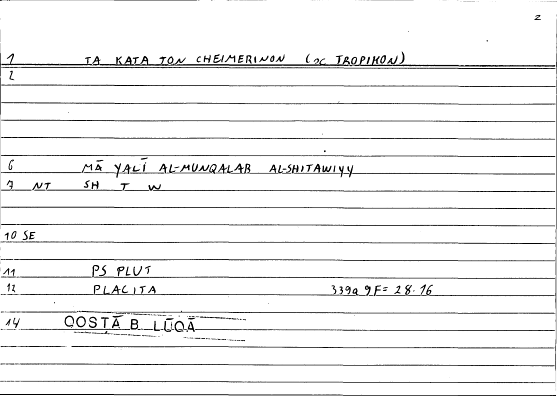 2
1 TA KATA TON CHEIMERINON (SC TROPIKON)
2
6 MĀ YALĪ AL-MUNQALAB AL-SHITAWIYY
7 NT SH T W
10 SE
11 PS PLUT
12 PLACITA 339a 9F = 28.16
14 QOSṬĀ B. LŪQĀ